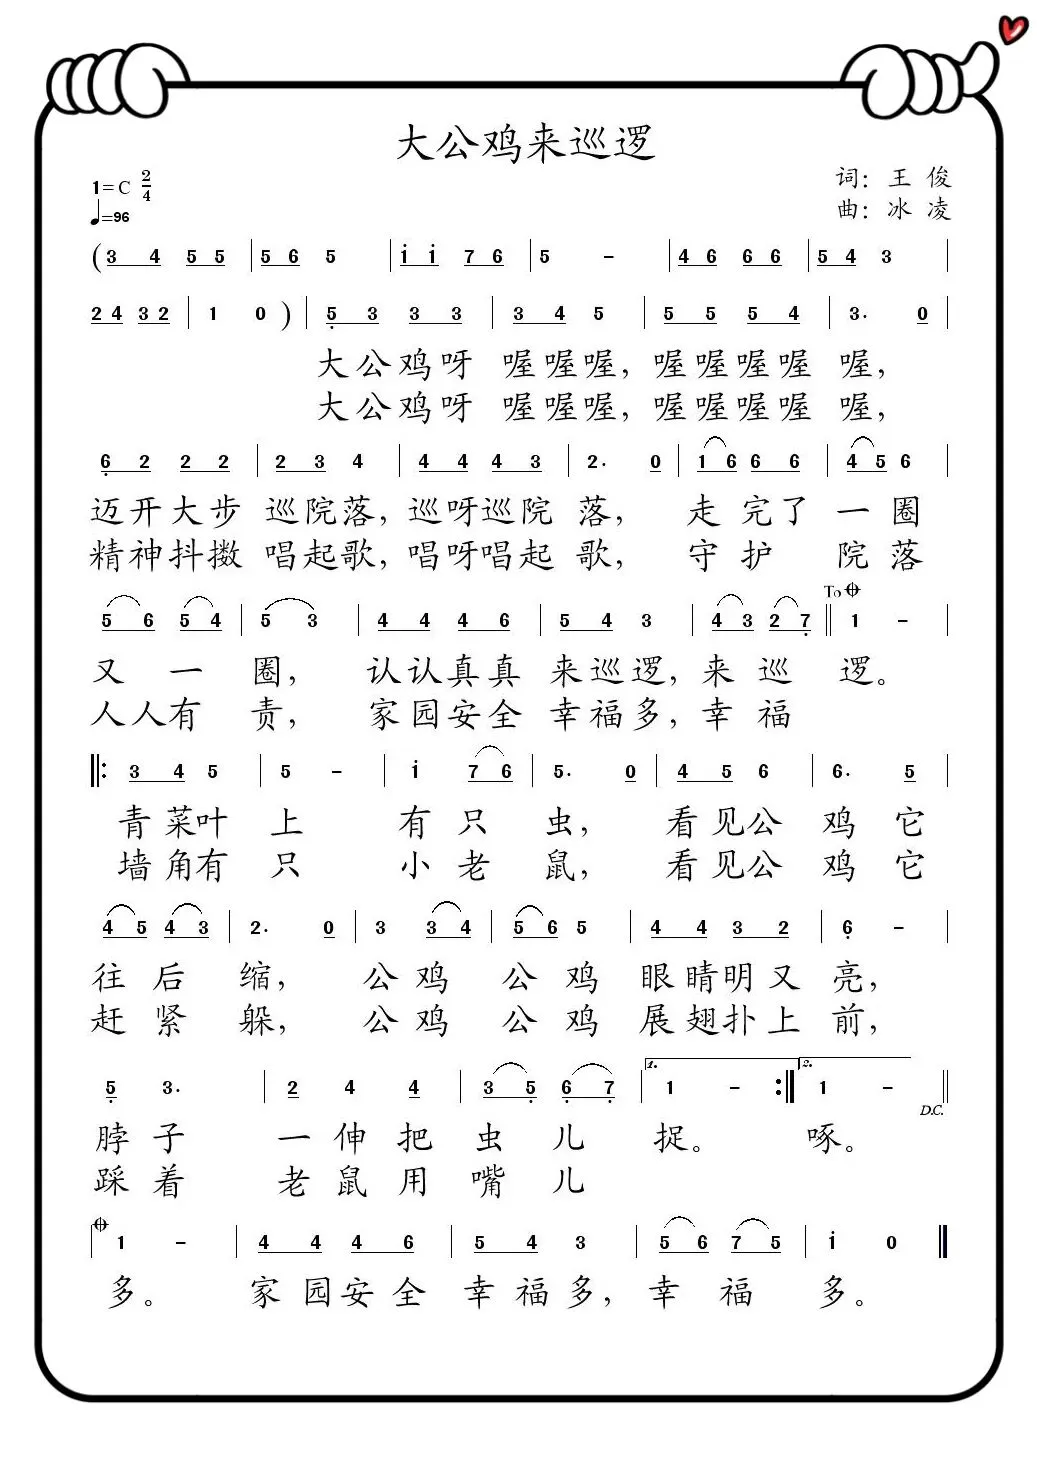 大公鸡来巡逻
1=C 2/4
词：王 俊
♩=96
曲：冰 凌
(3 4 5 5 | 5 6 5 | i i 7 6 | 5 - | 4 6 6 6 | 5 4 3 |
2 4 3 2 | 1 0 ) | 5 3 3 3 | 3 4 5 | 5 5 5 4 | 3. 0 |
大公鸡呀 喔喔喔，喔喔喔喔 喔，
大公鸡呀 喔喔喔，喔喔喔喔 喔，
6 2 2 2 | 2 3 4 | 4 4 4 3 | 2. 0 | 1 6 6 6 | 4 5 6 |
迈开大步 巡院落，巡呀巡院 落， 走 完了 一 圈
精神抖擞 唱起歌，唱呀唱起 歌， 守 护 院 落
5 6 5 4 | 5 3 | 4 4 4 6 | 5 4 3 | 4 3 2 7 || To 1 - |
又 一 圈， 认认真真 来巡逻，来 巡 逻。
人人有 责， 家园安全 幸福多，幸 福
||: 3 4 5 | 5 - | i 7 6 | 5. 0 | 4 5 6 | 6. 5 |
青菜叶 上 有 只 虫， 看见公 鸡 它
墙角有 只 小 老 鼠， 看见公 鸡 它
4 5 4 3 | 2. 0 | 3 3 4 | 5 6 5 | 4 4 3 2 | 6 - |
往 后 缩， 公 鸡 公 鸡 眼睛明又 亮，
赶 紧 躲， 公 鸡 公 鸡 展翅扑上 前，
5 3. | 2 4 4 | 3 5 6 7 | 1. 1 - :|| 2. 1 - || D.C.
脖 子 一 伸 把 虫 儿 捉。 啄。
踩 着 老 鼠 用 嘴 儿
1 - | 4 4 4 6 | 5 4 3 | 5 6 7 5 | i 0 ||
多。 家 园安 全 幸 福 多，幸 福 多。